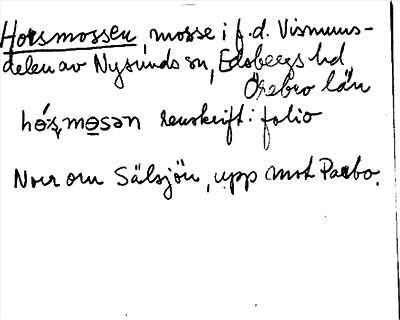 Horsmossen, mosse i f.d. Vismums-
delen av Nysunds sn, Edsbergs hd
Örebro län
renskrift i folio
Norr om Sälsjön, upp mot Parbo.